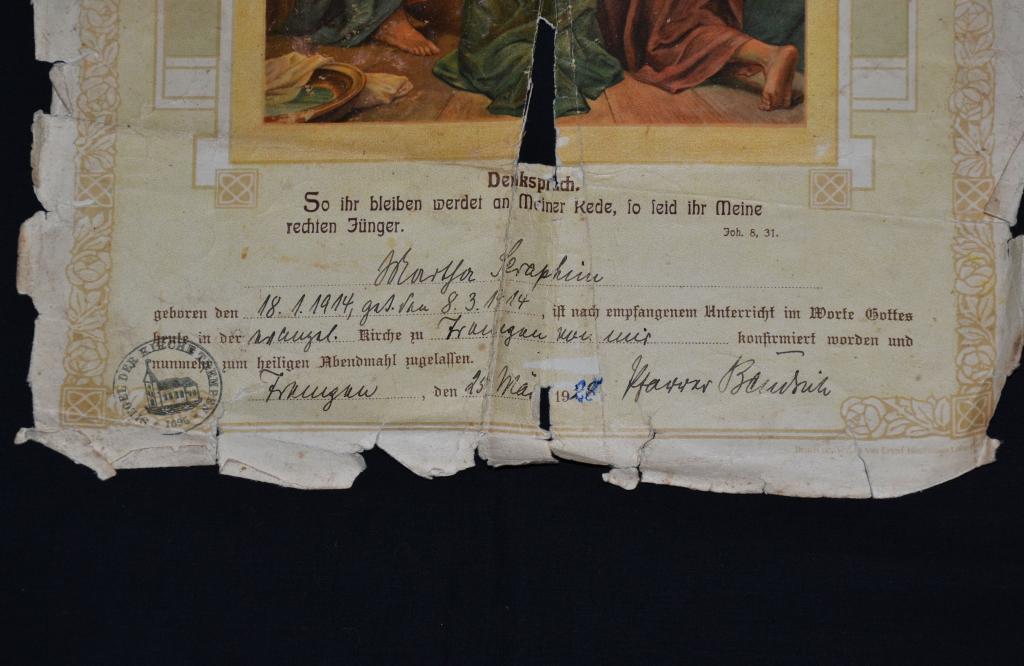 Denkspruch.
So ihr bleiben werdet an Meiner Rede, so seid ihr Meine
rechten Jünger.
Joh. 8, 31.
Martha Seraphim
geboren den 18. 1. 1914, get. den 8. 3. 1914, ist nach empfangenem Unterricht im Worte Gottes
heute in der evangel. Kirche zu von mir konfirmiert worden und
nunmehr zum heiligen Abendmahl zugelassen.
, den 25 Mär 1928 Pfarrer
SIEGEL DER KIRCHE
1896